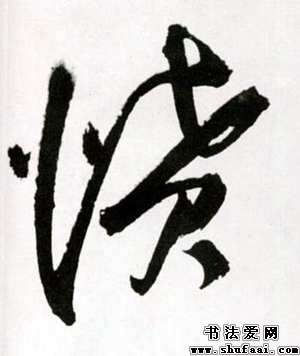 愤
书法爱网
www.shufaai.com